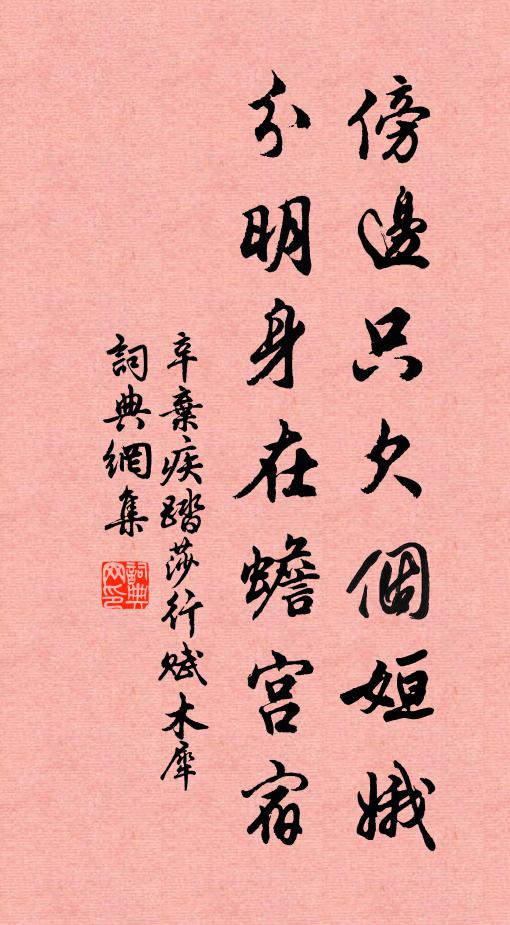 傍邊只欠個姮娥
分明身在蟾宮宿
辛棄疾踏莎行賦木犀
詞典網集
詞典
网印